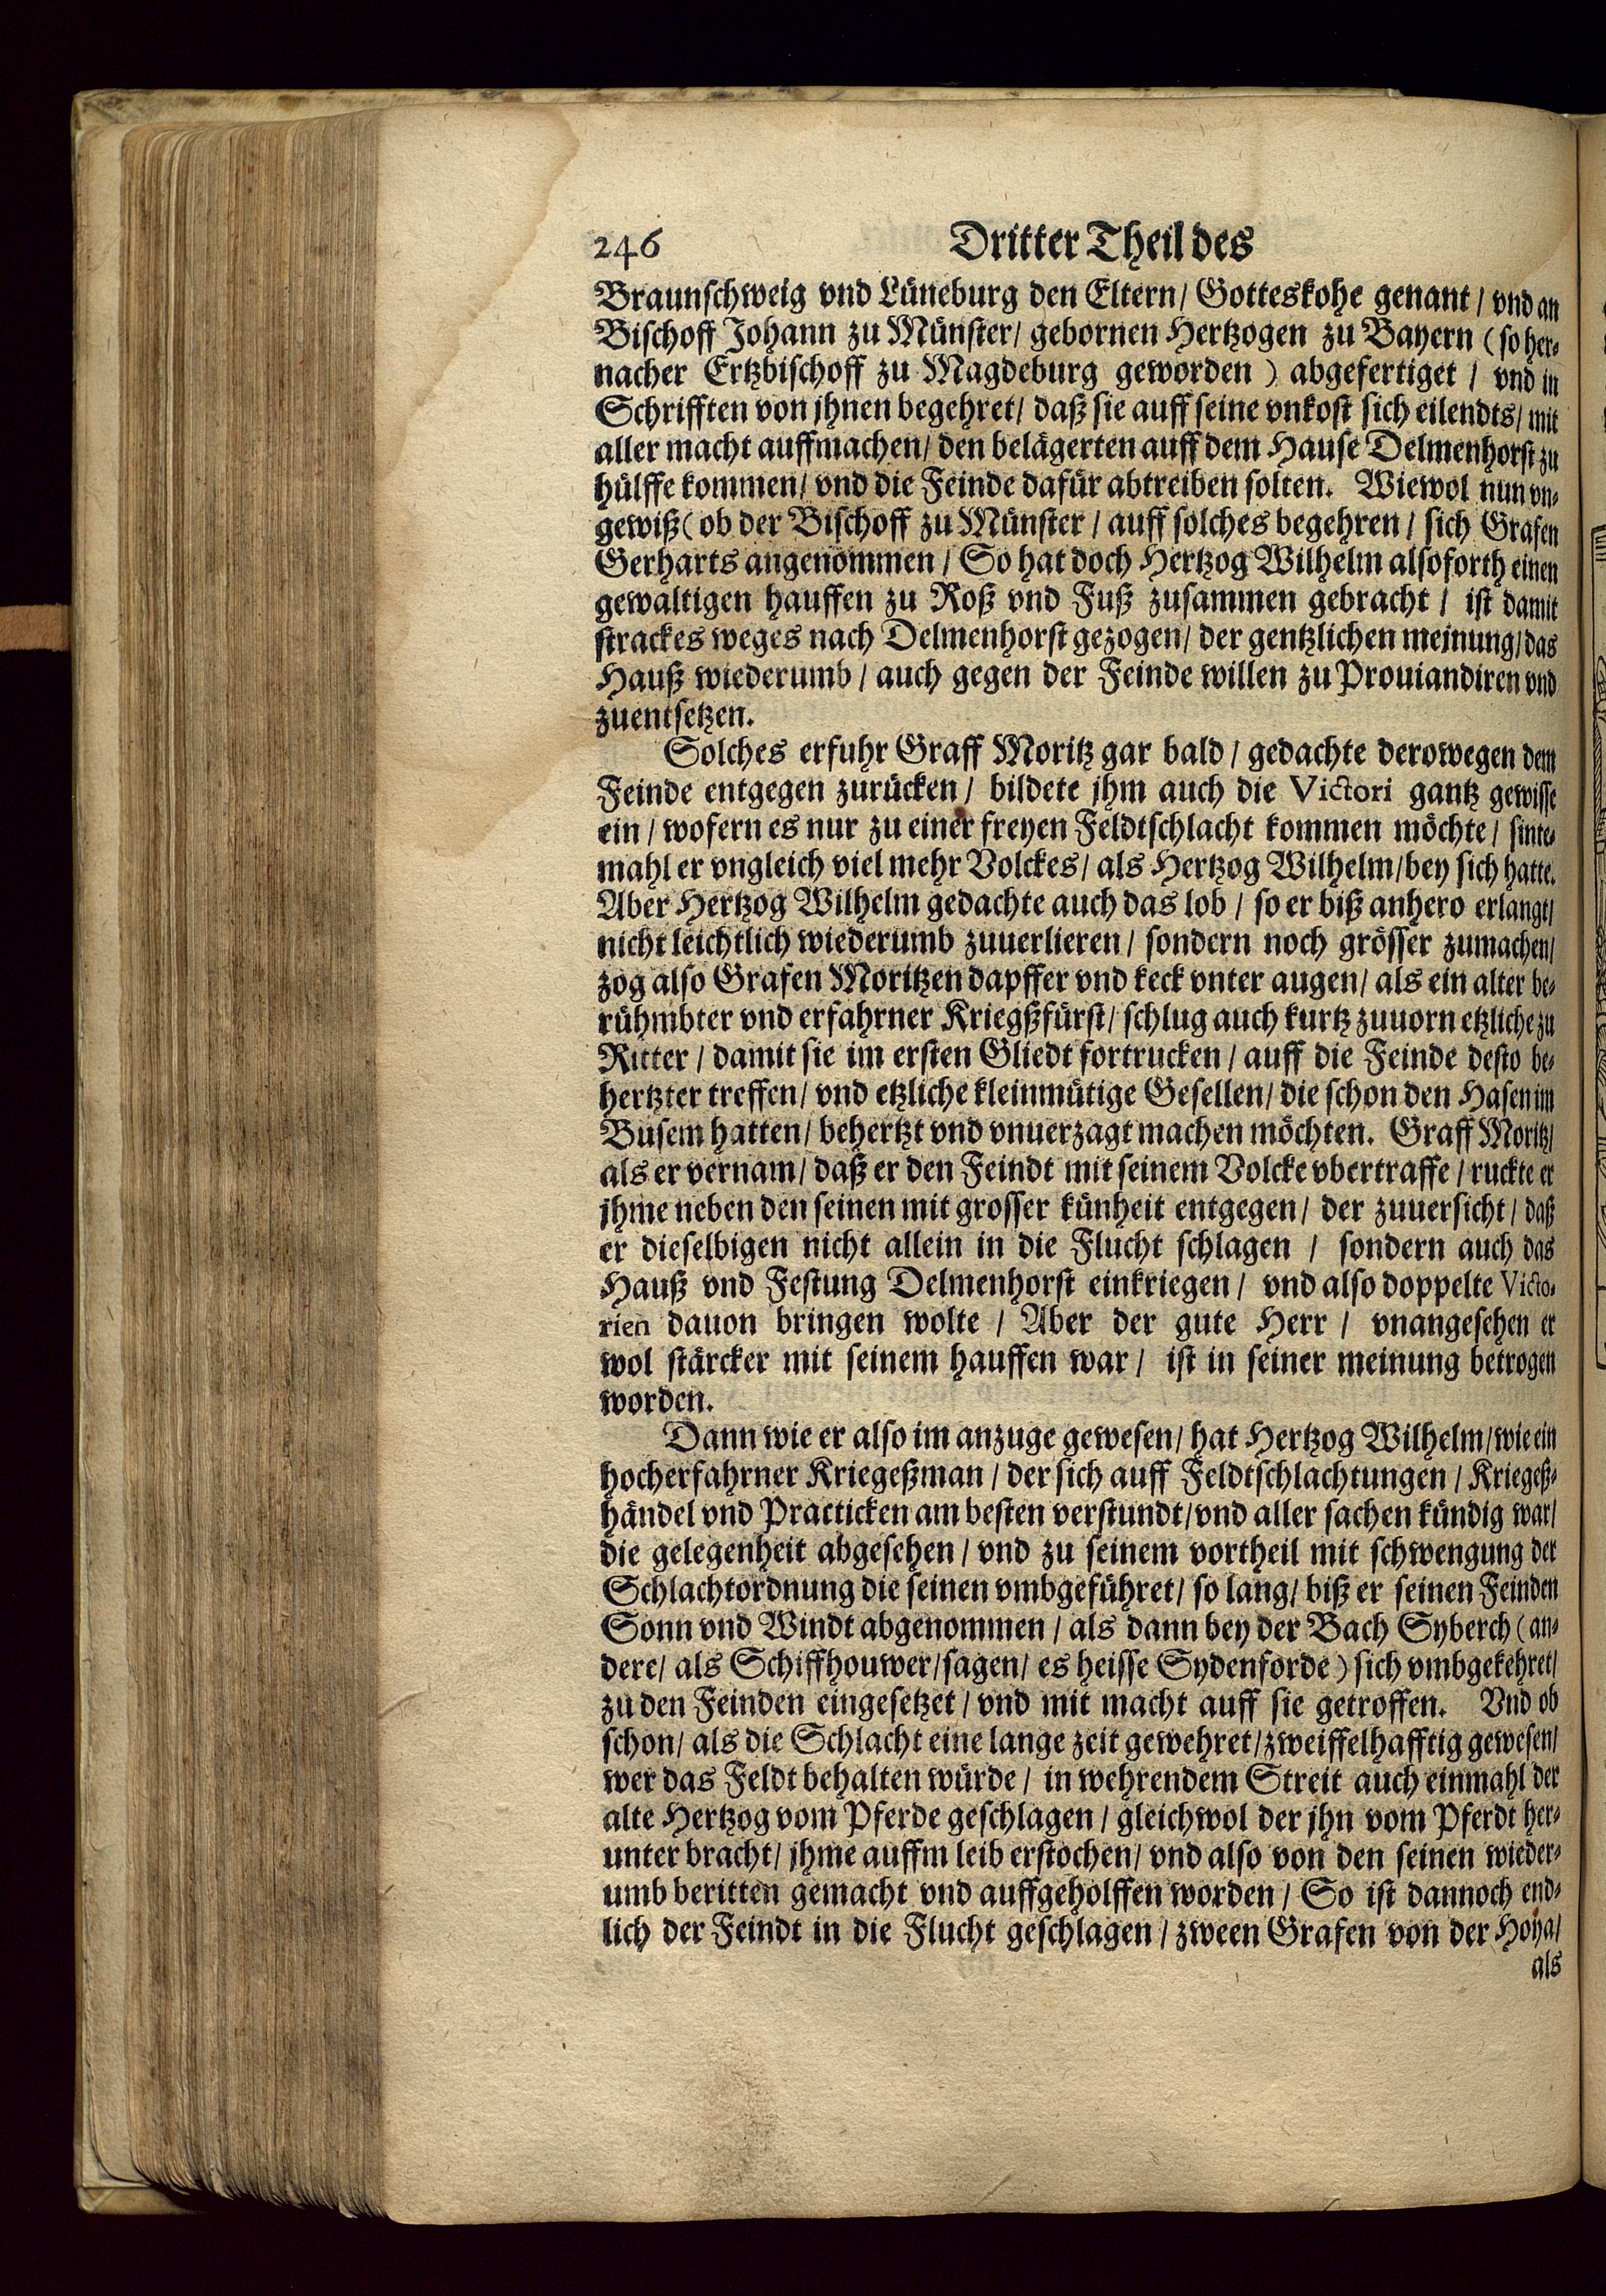 246 Dritter Theil des
Braunschweig vnd Lüneburg den Eltern/ Gotteskohe genant/ vnd an
Bischoff Johann zu Münster/ gebornen Hertzogen zu Bayern (so her-
nacher Ertzbischoff zu Magdeburg geworden) abgefertiget/ vnd in
Schrifften von jhnen begehret/ daß sie auff seine vnkost sich eilendts/ mit
aller macht auffmachen/ den belägerten auff dem Hause Delmenhorst zu
hülffe kommen/ vnd die Feinde dafür abtreiben solten. Wiewol nun vn-
gewiß (ob der Bischoff zu Münster/ auff solches begehren/ sich Grafen
Gerharts angenommen/ So hat doch Hertzog Wilhelm alsoforth einen
gewaltigen hauffen zu Roß vnd Fuß zusammen gebracht/ ist damit
strackes weges nach Delmenhorst gezogen/ der gentzlichen meinung/ das
Hauß wiederumb/ auch gegen der Feinde willen zu Prouiandiren vnd
zuentsetzen.
Solches erfuhr Graff Moritz gar bald/ gedachte derowegen dem
Feinde entgegen zurücken/ bildete jhm auch die Victori gantz gewisse
ein/ wofern es nur zu einer freyen Feldtschlacht kommen möchte/ sinte-
mahl er vngleich viel mehr Volckes/ als Hertzog Wilhelm/ bey sich hatte.
Aber Hertzog Wilhelm gedachte auch das lob/ so er biß anhero erlangt/
nicht leichtlich wiederumb zuuerlieren/ sondern noch grösser zumachen/
zog also Grafen Moritzen dapffer vnd keck vnter augen/ als ein alter be-
rühmbter vnd erfahrner Kriegßfürst/ schlug auch kurtz zuuorn etzliche zu
Ritter/ damit sie im ersten Gliedt fortrucken/ auff die Feinde desto be-
hertzter treffen/ vnd etzliche kleinmütige Gesellen/ die schon den Hasen im
Busem hatten/ behertzt vnd vnuerzagt machen möchten. Graff Moritz/
als er vernam/ daß er den Feindt mit seinem Volcke vbertraffe/ ruckte er
jhme neben den seinen mit grosser künheit entgegen/ der zuuersicht/ daß
er dieselbigen nicht allein in die Flucht schlagen/ sondern auch das
Hauß vnd Festung Delmenhorst einkriegen/ vnd also doppelte Victo-
rien dauon bringen wolte/ Aber der gute Herr/ vnangesehen er
wol stärcker mit seinem hauffen war/ ist in seiner meinung betrogen
worden.
Dann wie er also im anzuge gewesen/ hat Hertzog Wilhelm/ wie ein
hocherfahrner Kriegeßman/ der sich auff Feldtschlachtungen/ Kriegeß-
händel vnd Practicken am besten verstundt/ vnd aller sachen kündig war/
die gelegenheit abgesehen/ vnd zu seinem vortheil mit schwengung der
Schlachtordnung die seinen vmbgeführet/ so lang/ biß er seinen Feinden
Sonn vnd Windt abgenommen/ als dann bey der Bach Syberch (an-
dere/ als Schiffhouwer/ sagen/ es heisse Sydenforde) sich vmbgekehret/
zu den Feinden eingesetzet/ vnd mit macht auff sie getroffen. Vnd ob
schon/ als die Schlacht eine lange zeit gewehret/ zweiffelhafftig gewesen/
wer das Feldt behalten würde/ in wehrendem Streit auch einmahl der
alte Hertzog vom Pferde geschlagen/ gleichwol der jhn vom Pferdt her-
unter bracht/ jhme auffm leib erstochen/ vnd also von den seinen wieder-
umb beritten gemacht vnd auffgeholffen worden/ So ist dannoch end-
lich der Feindt in die Flucht geschlagen/ zween Grafen von der Hoya/
als